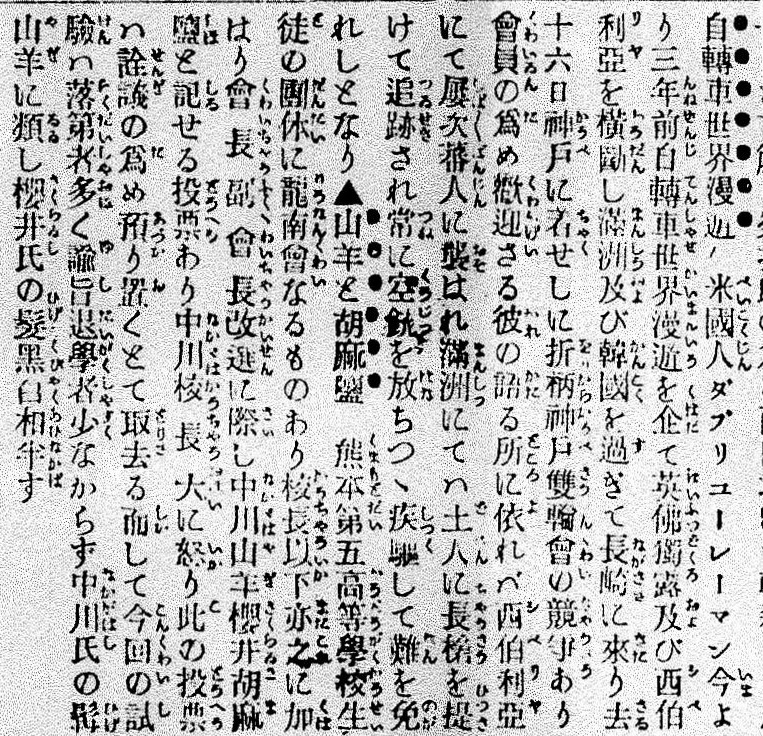 自轉車世界漫遊　米國人ダブリユーレーマン今よ
り三年前自轉車世界漫遊を企て英佛獨露及び西伯
利亞を橫斷し滿洲及び韓國を過ぎて長崎に來り去
十六日神戶に着せしに折柄神戶雙輪會の競爭あり
會員の爲め歡迎さる彼の語る所に依れバ西伯利亞
にて屢次蕃人に襲はれ滿洲にてハ土人に長槍を提
けて追跡され常に空銃を放ちつゝ疾驅して難を免
れしとなり▲山羊と胡麻鹽　熊本第五高等學校生
徒の團体に龍南會なるものあり校長以下亦之に加
はり會長副會長改選に際し中川山羊櫻井胡麻
鹽と記せる投票あり中川校長大に怒り此の投票
ハ詮議の爲め預り置くとて取去る而して今回の試
驗ハ落第者多く諭旨退學者少なからず中川氏の髯
山羊に類し櫻井氏の髮黑白相半す